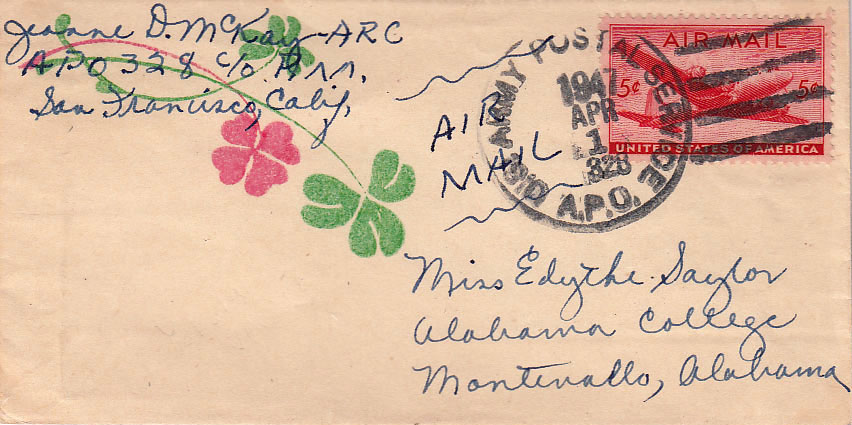 Jeanne D. McKay-ARC
APO 328 c/o P.M.
San Francisco, Calif.
AIR
MAIL
ARMY POSTAL SERVICE
1947
APR
1
328
A.P.O.
AIR MAIL
5¢ 5¢
UNITED STATES OF AMERICA
Miss Edythe Saylor
Alabama College
Montevallo, Alabama